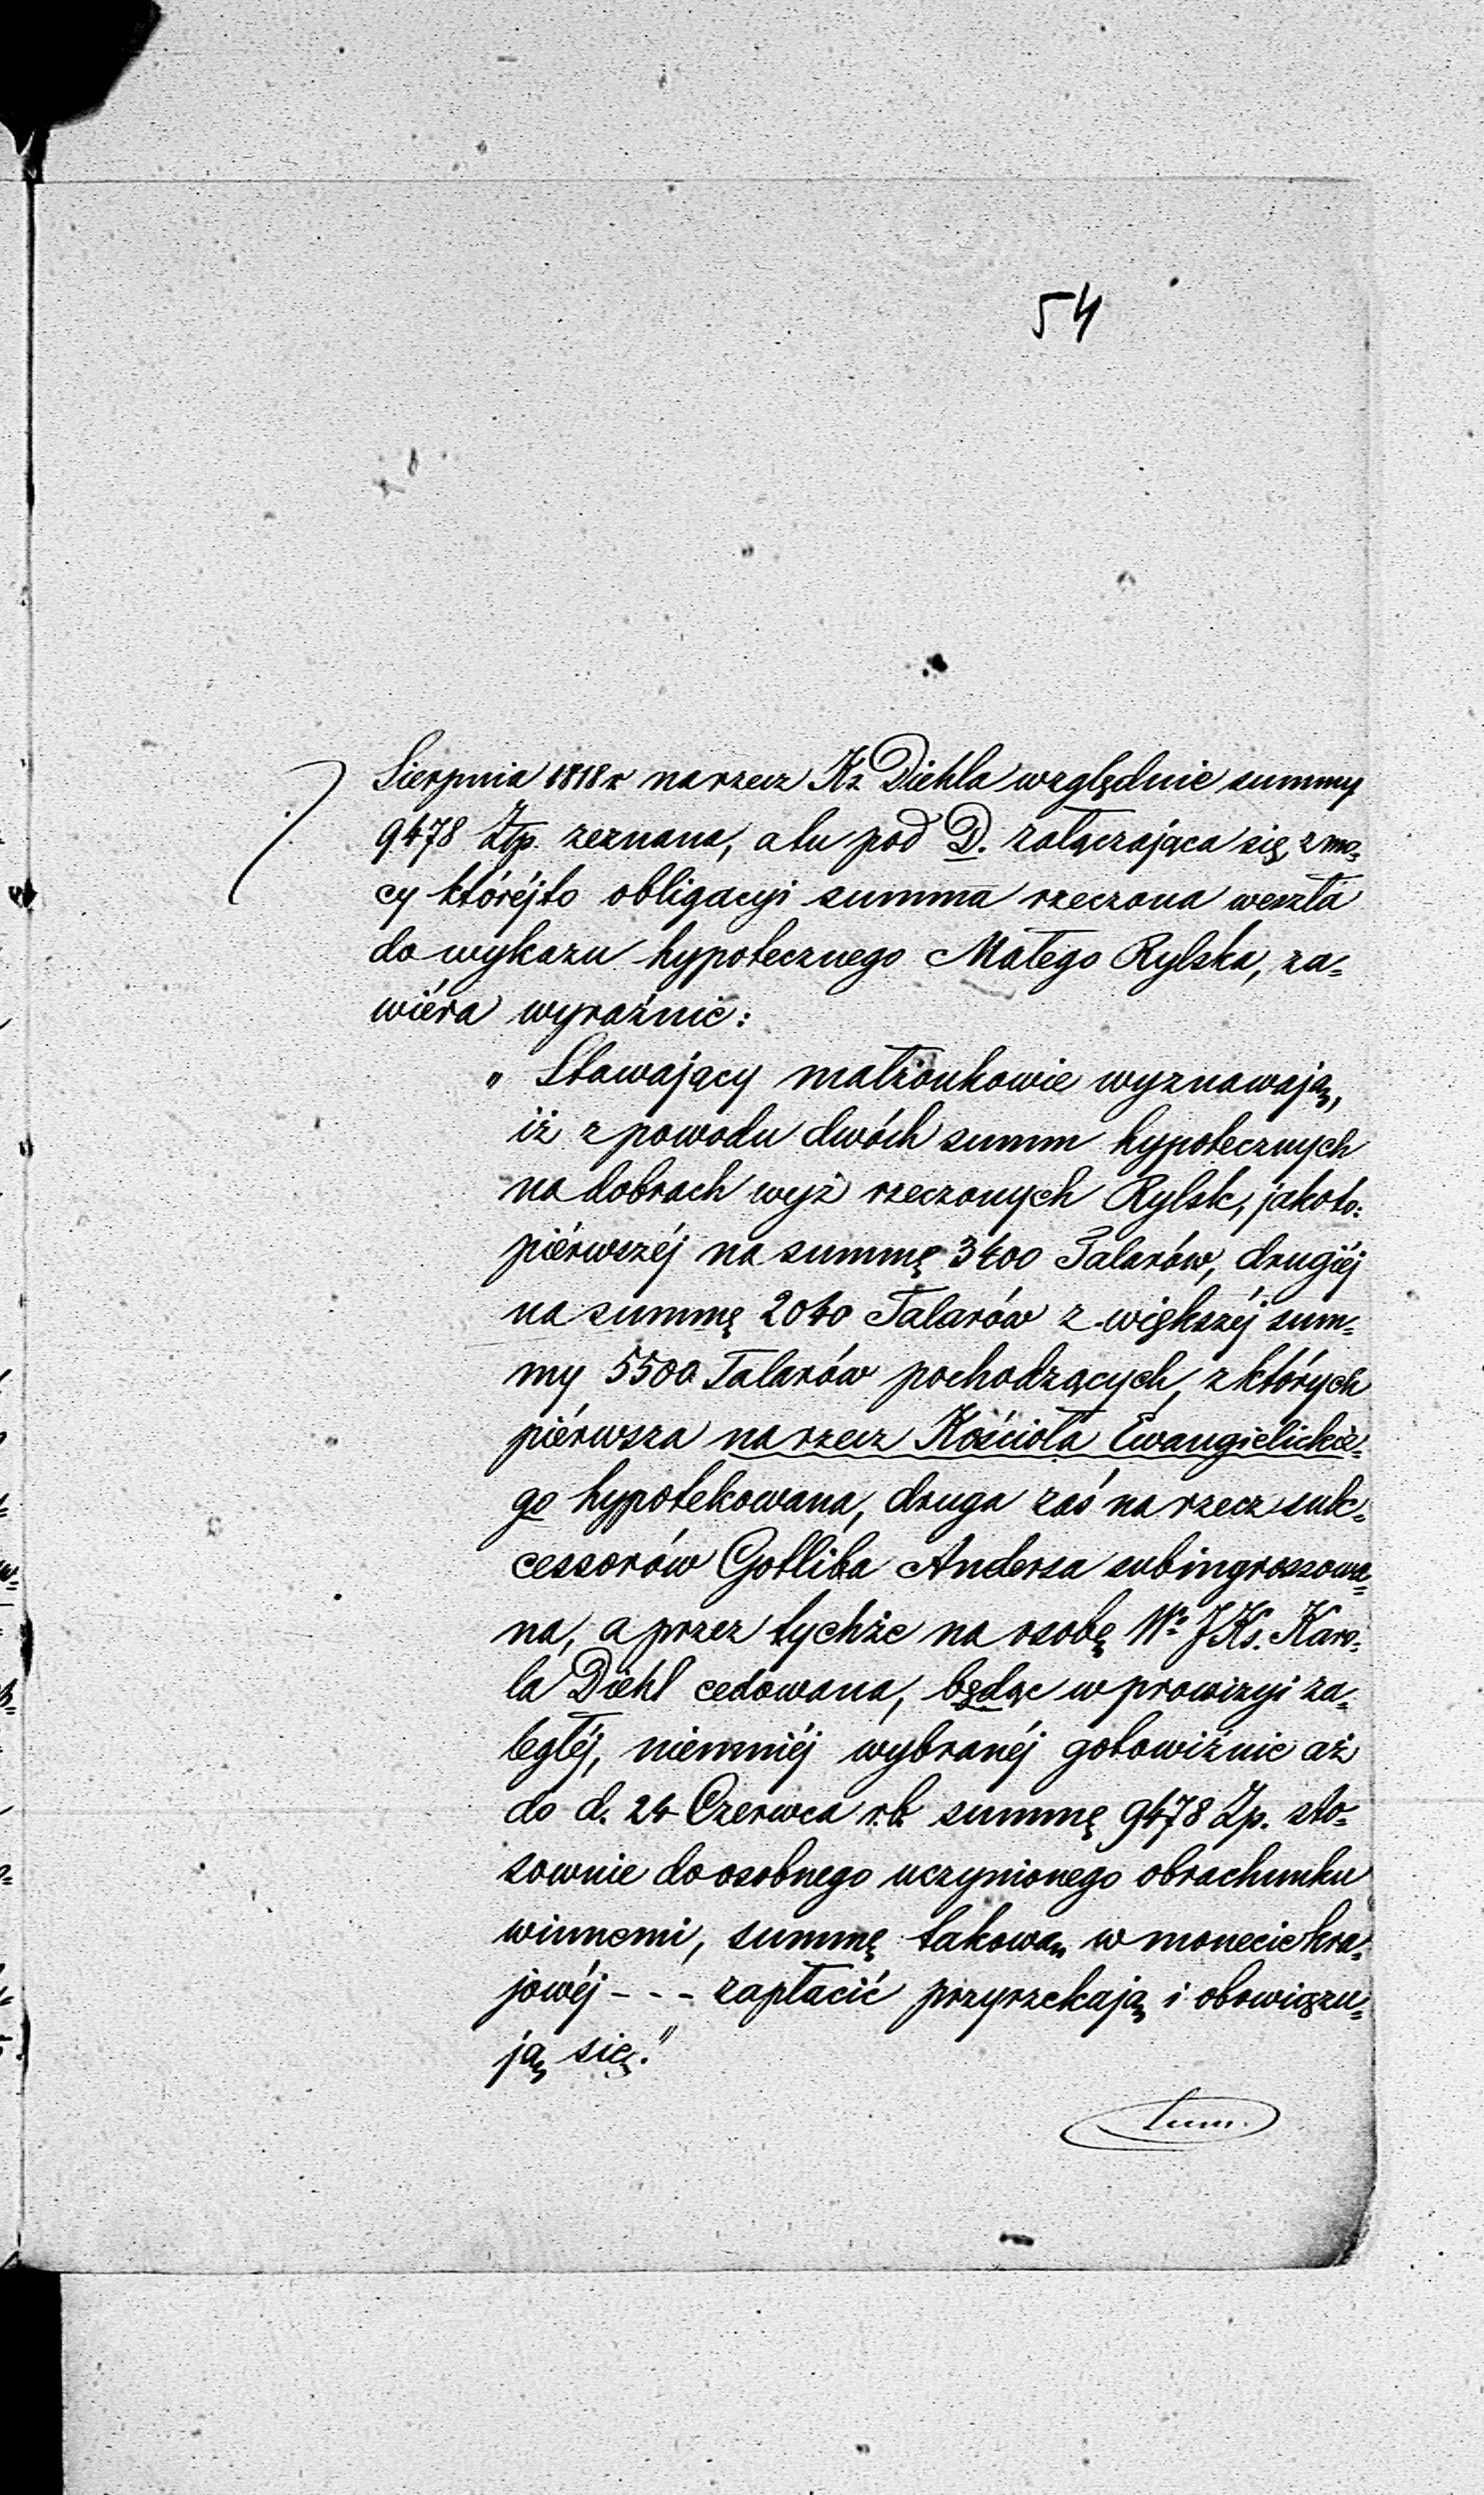 54
Sierpnia 1818 r narzecz Kz Diehla względnie summy
9478 Ztp. zeznana, a tu pod D. załączająca się, z mo=
cy któréjto obligacyi summa rzeczona weszła
do wykazu hypotecznego Małego Rylska, za=
wiéra wyraźnie:
„ Stawający małżonkowie wyznawają,
iż z powodu dwóch summ hypotecznych
na dobrach wyż rzeczonych Rylsk, jakoto:
piérwszéj na summę 3400 Talarów, drugiéj
na summę 2040 Talarów z większéj sum=
my 5500 Talarów pochodzących, z których
piérwsza na rzecz Kościoła Ewangielickie=
go hypotekowana, druga zaś na rzecz suk=
cessorów Gotliba Andersa subingrossowa=
na, a przez tychże na osobę Wo JKs. Karo=
la Diehl cedowana, będąc w prowizyi za=
ległéj, niemniéj wybranéj gotowiźnie aż
do d. 24 Czerwca r.b. summę 9478 Zp. sto=
sownie do osobnego uczynionego obrachunku
winnemi, summę takową w monecie kra=
jowéj - - - zapłacić przyrzekają i obowiązu=
ją się."